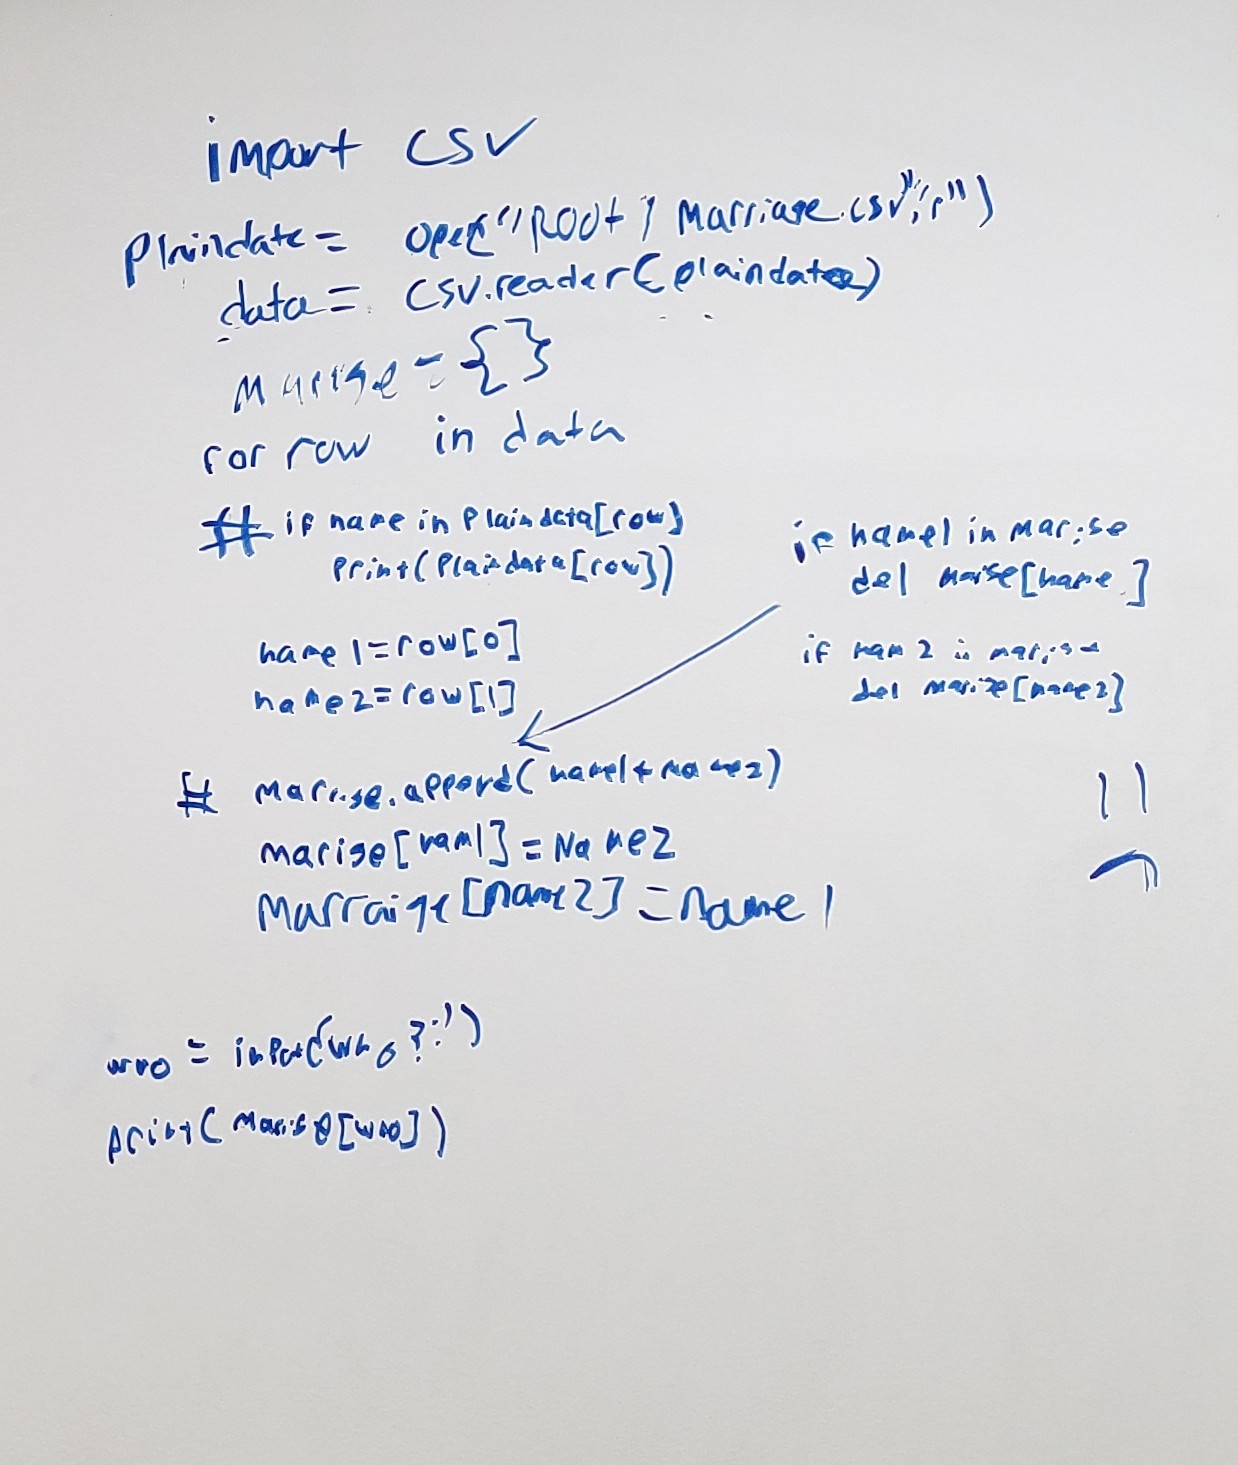 import csv
Plaindate = open("Root/Marriage.csv","r")
data = csv.reader(plaindatae)
Marige = {}
for row in data
# if name in Plaindata[row]
Print(Plaindata[row])
name1=row[0]
name2=row[1]
if name1 in marise
del marise[name ]
if nam 2 in marise
del marize[name2]
# Marrise.append(name1+name2)
marige[nam1]=Name2
Marraige[name2]=name1
who = input('who?:')
print(Marise[who])